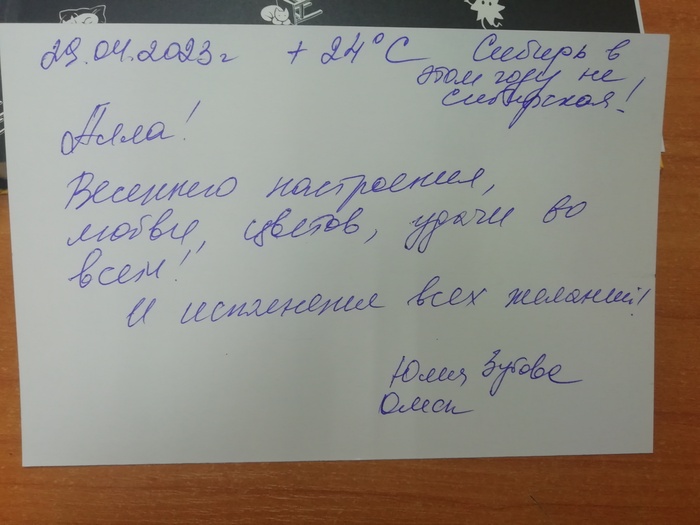 29.04.2023г + 24°C Сибирь в
этом году не
сибирская!
Алла!
Весеннего настроения,
любви, цветов, удачи во
всем!
И исполнения всех желаний!
Юлия
Омск